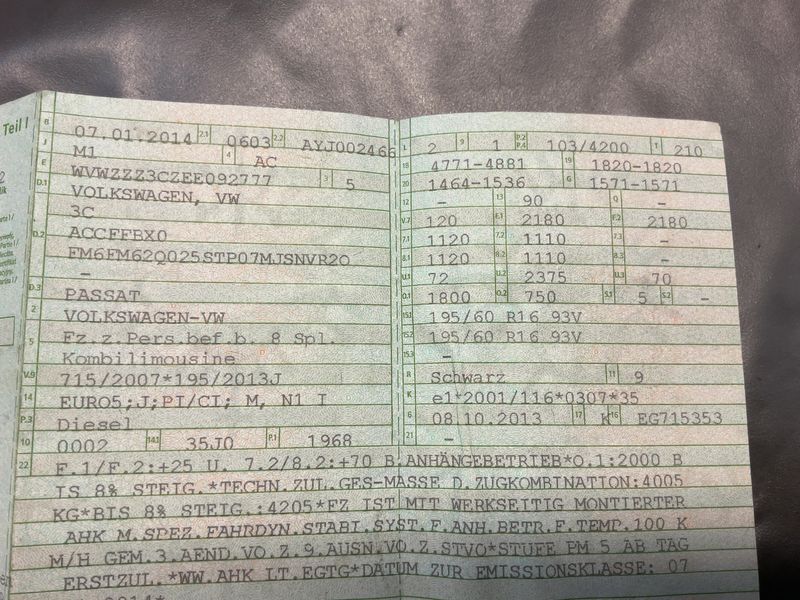 Teil I
B 07.01.2014 2.1 0603 2.2 AYJ002466
J M1 4 AC
E WVWZZZ3CZEE092777 3 5
D.1 VOLKSWAGEN, VW
3C
D.2 ACCFFBX0
FM6FM62Q025STP07MJSNVR2O
-
D.3 PASSAT
2 VOLKSWAGEN-VW
5 Fz.z.Pers.bef.b. 8 Spl.
Kombilimousine
V.9 715/2007*195/2013J
14 EURO5;J;PI/CI; M, N1 I
P.3 Diesel
10 0002 14.1 35J0 P.1 1968
L 2 9 1 P.2 P.4 103/4200 T 210
18 4771-4881 19 1820-1820
20 1464-1536 G 1571-1571
12 - 13 90 Q -
V.7 120 F.1 2180 F.2 2180
7.1 1120 7.2 1110 7.3 -
8.1 1120 8.2 1110 8.3 -
U.1 72 U.2 2375 U.3 70
O.1 1800 O.2 750 S.1 5 S.2 -
15.1 195/60 R16 93V
15.2 195/60 R16 93V
15.3 -
R Schwarz 11 9
K e1*2001/116*0307*35
6 08.10.2013 17 K 16 EG715353
21 -
22 F.1/F.2:+25 U. 7.2/8.2:+70 B.ANHÄNGEBETRIEB*O.1:2000 B
IS 8% STEIG.*TECHN.ZUL.GES-MASSE D.ZUGKOMBINATION:4005
KG*BIS 8% STEIG.:4205*FZ IST MIT WERKSEITIG MONTIERTER
AHK M.SPEZ.FAHRDYN.STABI.SYST.F.ANH.BETR.F.TEMP.100 K
M/H GEM.3.AEND.VO.Z.9.AUSN.VO.Z.STVO*STUFE PM 5 AB TAG
ERSTZUL.*WW.AHK LT.EGTG*DATUM ZUR EMISSIONSKLASSE: 07